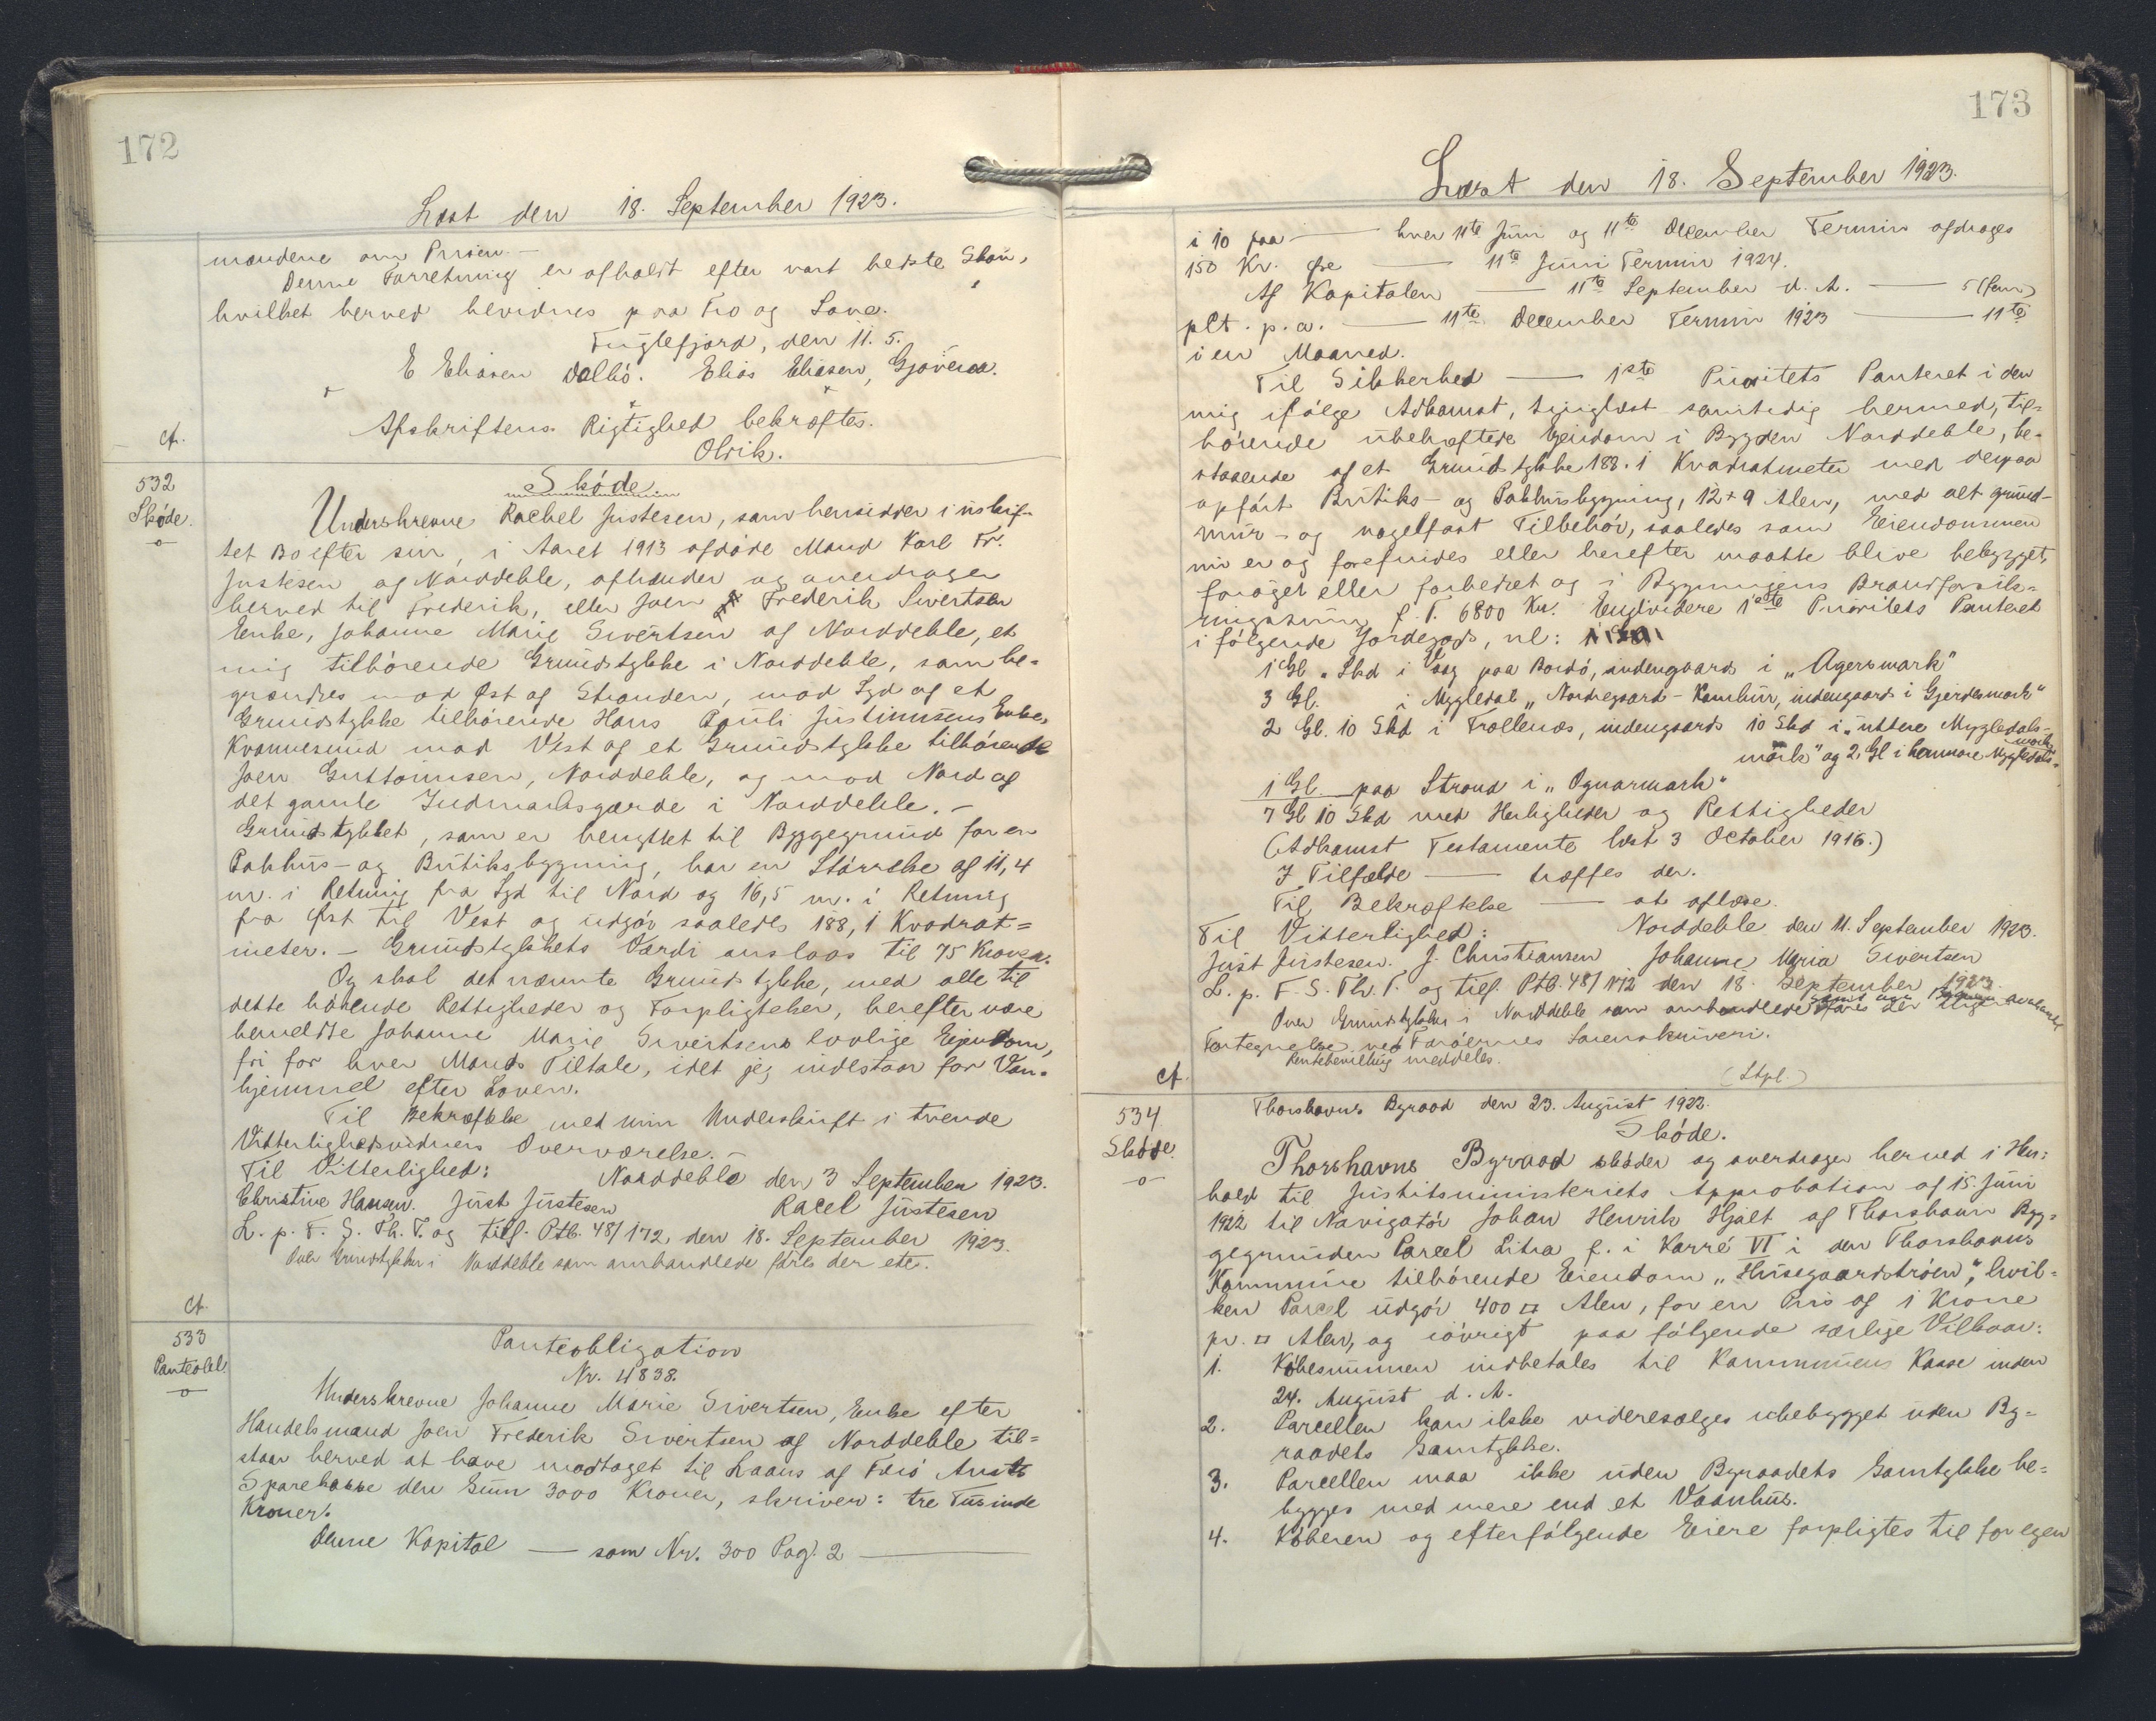 172
Læst den 18. September 1923.
mændene om Prisen. —
Denne Forretning er afholdt efter vort bedste Skøn,
hvilket herved bevidnes paa Tro og Love.
Fuglefjord, den 11. 5.
E Eliasen Dalbö. Elias Eliasen, Gjóveraa.
Afskriftens Rigtighed bekræftes.
Olrik.
cf.
532
Skøde.
Skøde
Underskrevne Rachel Justesen, som hensidder i uskif-
tet Bo efter sin, i Aaret 1913 afdøde Mand Karl Fr.
Justesen af Norddeble, afhænder og overdrager
herved til Frederik, eller Joen Frederik Sivertsen
Enke, Johanne Marie Sivertsen af Norddeble, et
mig tilhørende Grundstykke i Norddeble, som be-
grændses mod Øst af Stranden, mod Syd af et
Grundstykke tilhørende Hans Pauli Justinussens Enke,
Kvannesund mod Vest af et Grundstykke tilhørende
Joen Guttormsen, Norddeble, og mod Nord af
det gamle Indmarksgærde i Norddeble. —
Grundstykket, som er benyttet til Byggegrund for en
Pakhus- og Butiksbygning, har en Størrelse af 11,4
m. i Retning fra Syd til Nord og 16,5 m. i Retning
fra Øst til Vest og udgør saaledes 188,1 Kvadrat=
meter. — Grundstykkets Værdi anslaas til 75 Kroner.
Og skal det nævnte Grundstykke, med alle til
dette hørende Rettigheder og Forpligtelser, herefter være
bemeldte Johanne Marie Sivertsens lovlige Ejendom,
fri for hver Mands Tiltale, idet jeg indestaar for Van-
hjemmel efter Loven.
Til Bekræftelse med min Underskrift i tvende
Vitterlighedsvidners Overværelse. —
Til Vitterlighed: Norddeble den 3 September 1923.
Christine Hansen. Just Justesen Racel Justesen
L. p. F. S. Th. T. og tilf. Ptb. 48/172, den 18. September 1923.
Over Grundstykker i Norddeble som omhandlede føres der etc.
cf.
533
Panteobl.
Panteobligation
Nr. 4838.
Underskrevne Johanne Marie Sivertsen, Enke efter
Handelsmand Joen Frederik Sivertsen af Norddeble til=
staar herved at have modtaget til Laans af Færø Amts
Sparekasse den Sum 3000 Kroner, skriver: tre Tusinde
Kroner.
Denne Kapital — som Nr. 300 Pag. 2 —
173
Læst den 18. September 1923.
i 10 paa — hver 11te Juni og 11te December Termin afdrages
150 Kr. Øre — 11te Juni Termin 1924.
Af Kapitalen — 11te September d. A. — 5 (fem)
pCt. p. a. — 11te December Termin 1923 — 11te
i en Maaned.
Til Sikkerhed — 1ste Prioritets Panteret i den
mig ifølge Adkomst, tinglæst samtidig hermed, til-
hørende ubehæftede Ejendom i Bygden Norddeble, be-
staaende af et Grundstykke 188.1 Kvadratmeter med derpaa
opført Butiks- og Pakhusbygning, 12 + 9 Alen, med alt grund-
mur- og nagelfast Tilbehør, saaledes som Eiendommen
nu er og forefindes eller herefter maatte blive bebygget,
forøget eller forbedret og i Bygningens Brandforsik=
ringssum f. T. 6800 Kr. Endvidere 1ste Prioritets Panteret
i følgende Jordegods, nl:
1 Gl. Skd i Vaag paa Bordö, indengaards i „Agersmark"
3 Gl. i Mygledal „Nordregaard - Kambur, indengaards i Gjerdesmark"
2 Gl. 10 Skd i Trollenæs, indengaards 10 Skd i „uttere Mygledals-
mark" og 2 Gl i hemmare Mygledals-
mark
1 Gl. paa Strond i „Ognarmark"
7 Gl 10 Skd med Herligheder og Rettigheder
(Adkomst Testamente læst 3 October 1916.)
I Tilfælde — træffes der.
Til Bekræftelse — at aflæse.
Til Vitterlighed: Norddeble den 11. September 1923.
Just Justesen. J. Christiansen Johanne Maria Sivertsen
L. p. F. S. Th. T. og tilf. Ptb. 48/172 den 18. September 1923.
Over Grundstykker i Norddeble som omhandlede samt føres der
Fortegnelse ved Færøernes Sorenskriveri.
Rentebevilling meddeles.
cf.
(Stpl.)
534
Skøde.
Thorshavns Byraad den 23. August 1922.
Skøde.
Thorshavns Byraad skøder og overdrager herved i Hen=
hold til Justitsministeriets Approbation af 15. Juni
1922 til Navigatör Johan Henrik Hjalt af Thorshavn Byg=
gegrunden Parcel Litra f. i Karré VI i den Thorshavns
Kommune tilhørende Eiendom „Husegaardströen", hvil=
ken Parcel udgør 400 □ Alen, for en Pris af 1 Krone
pr. □ Alen, og iøvrigt paa følgende særlige Vilkaar:
1. Købesummen indbetales til Kommunens Kasse inden
24. August d. A.
2. Parcellen kan ikke videresælges ubebygget uden By=
raadets Samtykke.
3. Parcellen maa ikke uden Byraadets Samtykke be=
bygges med mere end et Vaanhus.
4. Køberen og efterfølgende Eiere forpligtes til for egen